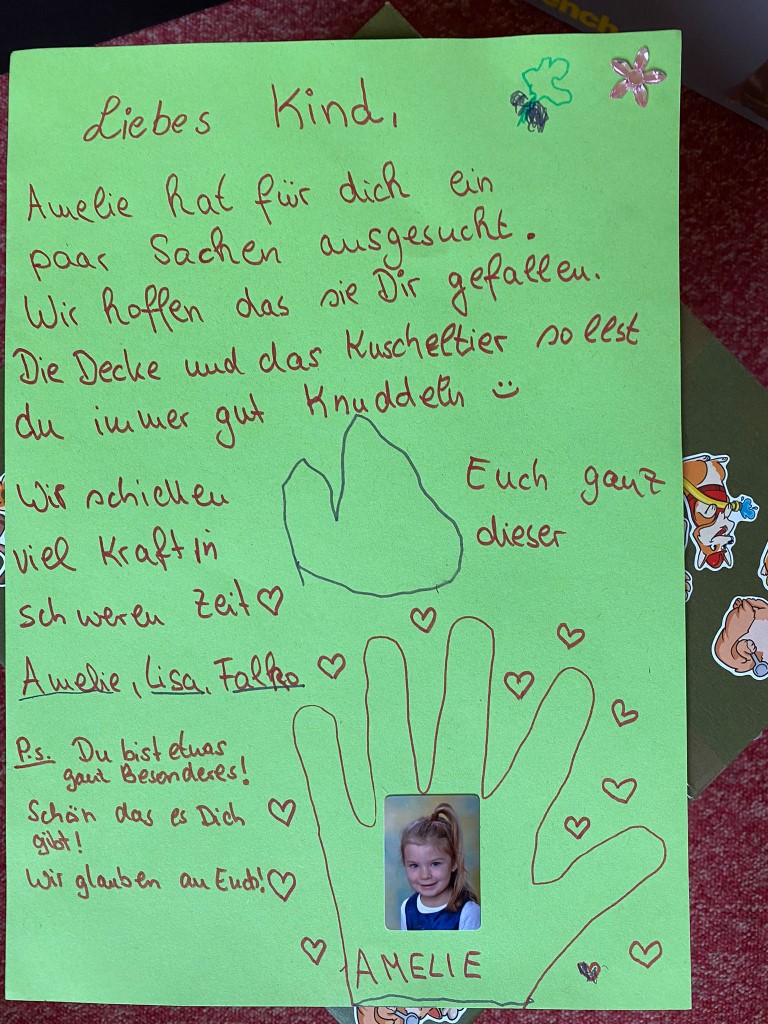 Liebes Kind,
Amelie hat für dich ein
paar Sachen ausgesucht.
Wir hoffen das sie Dir gefallen.
Die Decke und das Kuscheltier sollst
du immer gut Knuddeln
Wir schicken Euch ganz
viel Kraft in dieser
schweren Zeit
Amelie, Lisa, Falko
P.s. Du bist etwas
ganz Besonderes!
Schön das es Dich
gibt!
Wir glauben an Euch!
AMELIE